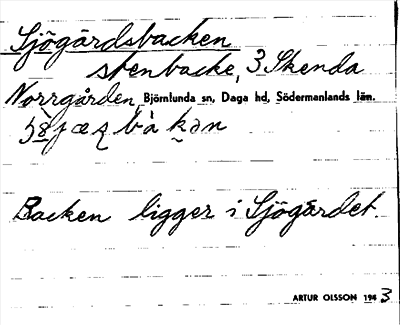 Sjögärdsbacken
stenbacke, 3 Skenda
Norrgården, Björnlunda sn, Daga hd, Södermanlands län.
Backen ligger i Sjögärdet.
ARTUR OLSSON 1943